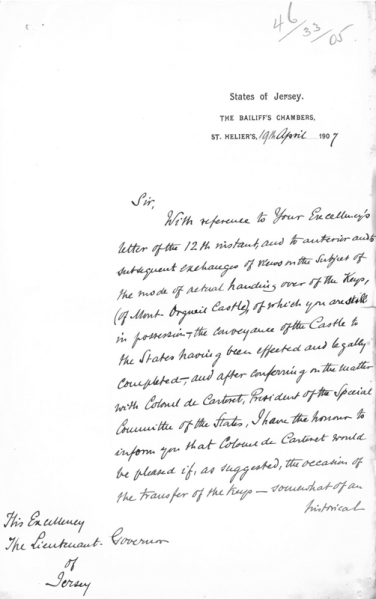 46/33/05
States of Jersey.
THE BAILIFF'S CHAMBERS,
ST. HELIER'S, 19th April 1907
Sir,
With reference to Your Excellency's
letter of the 12th instant, and to anterior and
subsequent exchanges of views on the subject of
the mode of actual handing over of the Keys,
(of Mont Orgueil Castle), of which you are still
in possession – the conveyance of the Castle to
the States having been effected and legally
completed –, and after conferring on the matter
with Colonel de Carteret, President of the Special
Committee of the States, I have the honour to
inform you that Colonel de Carteret would
be pleased if, as suggested, the occasion of
the transfer of the Keys – somewhat of an
historical
His Excellency
The Lieutenant-Governor
of
Jersey